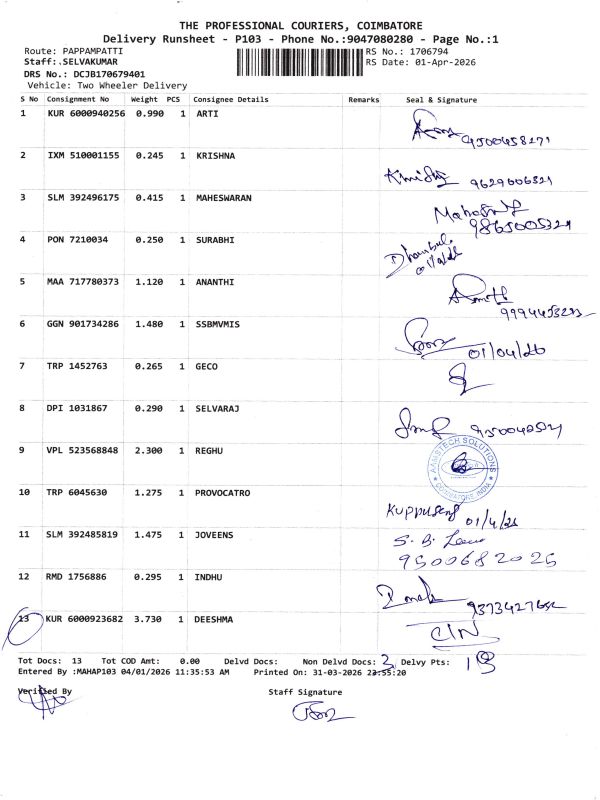 THE PROFESSIONAL COURIERS, COIMBATORE
Delivery Runsheet - P103 - Phone No.:9047080280 - Page No.:1
Route: PAPPAMPATTI
RS No.: 1706794
Staff:.SELVAKUMAR
RS Date: 01-Apr-2026
DRS No.: DCJB170679401
Vehicle: Two Wheeler Delivery
S No Consignment No Weight PCS Consignee Details Remarks Seal & Signature
1 KUR 6000940256 0.990 1 ARTI
9500458171
2 IXM 510001155 0.245 1 KRISHNA
9629006321
3 SLM 392496175 0.415 1 MAHESWARAN
9865005321
4 PON 7210034 0.250 1 SURABHI
5 MAA 717780373 1.120 1 ANANTHI
6 GGN 901734286 1.480 1 SSBMVMIS
01/04/26
7 TRP 1452763 0.265 1 GECO
8 DPI 1031867 0.290 1 SELVARAJ
9 VPL 523568848 2.300 1 REGHU
AAMSTECH SOLUTIONS
COIMBATORE INDIA
10 TRP 6045630 1.275 1 PROVOCATRO
01/4/26
11 SLM 392485819 1.475 1 JOVEENS
S. B.
9500682025
12 RMD 1756886 0.295 1 INDHU
13 KUR 6000923682 3.730 1 DEESHMA
Tot Docs: 13 Tot COD Amt: 0.00 Delvd Docs: Non Delvd Docs: Delvy Pts:
Entered By :MAHAP103 04/01/2026 11:35:53 AM Printed On: 31-03-2026 23:55:20
Verified By Staff Signature